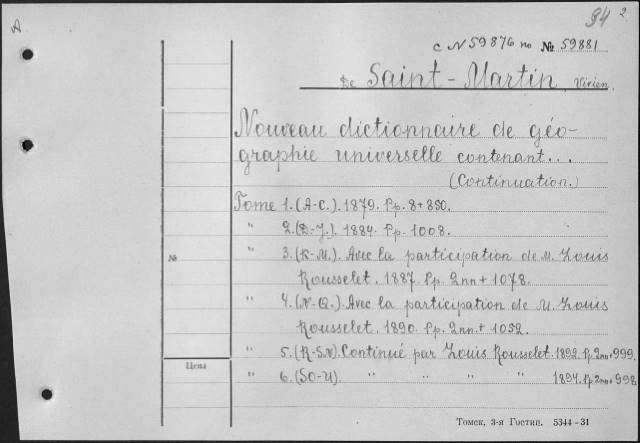 A
94 2
с N 59876 по № 59881
De Saint-Martin, Vivien.
Nouveau dictionnaire de géo-
graphie universelle contenant...
(Continuation.)
Tome 1. (A-C.). 1879. Pp. 8+830.
" 2. (D-J.). 1884. Pp. 1008.
№ " 3. (K-M.). Avec la participation de M. Louis
Rousselet. 1887. Pp. 2nn+1078.
" 4. (N-Q.). Avec la participation de M. Louis
Rousselet. 1890. Pp. 2nn.+1052.
" 5. (R-SN). Continué par Louis Rousselet. 1892. Pp. 2nn+999.
Цена
" 6. (SO-U). " " " " 1894. Pp. 2nn+998
Томск, 3-я Гостип. 5344-31